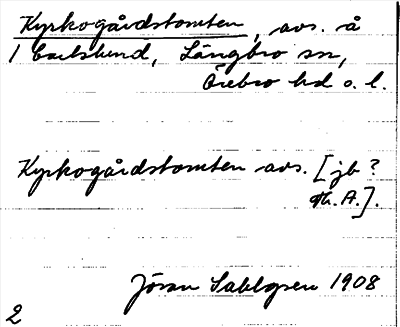 Kyrkogårdstomten, avs. å
1 Carlslund, Längbro sn,
Örebro hd o. l.
Kyrkogårdstomten avs. [jb ?
Th. A.].
Jöran Sahlgren 1908
2